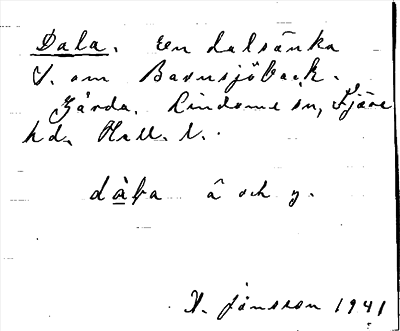 Dala. En dalsänka
V. om Barnsjöbäck.
Gärda, Lindome sn, Fjäre
hd. Hall. l.
dàla â och y.
N. Jönsson 1941